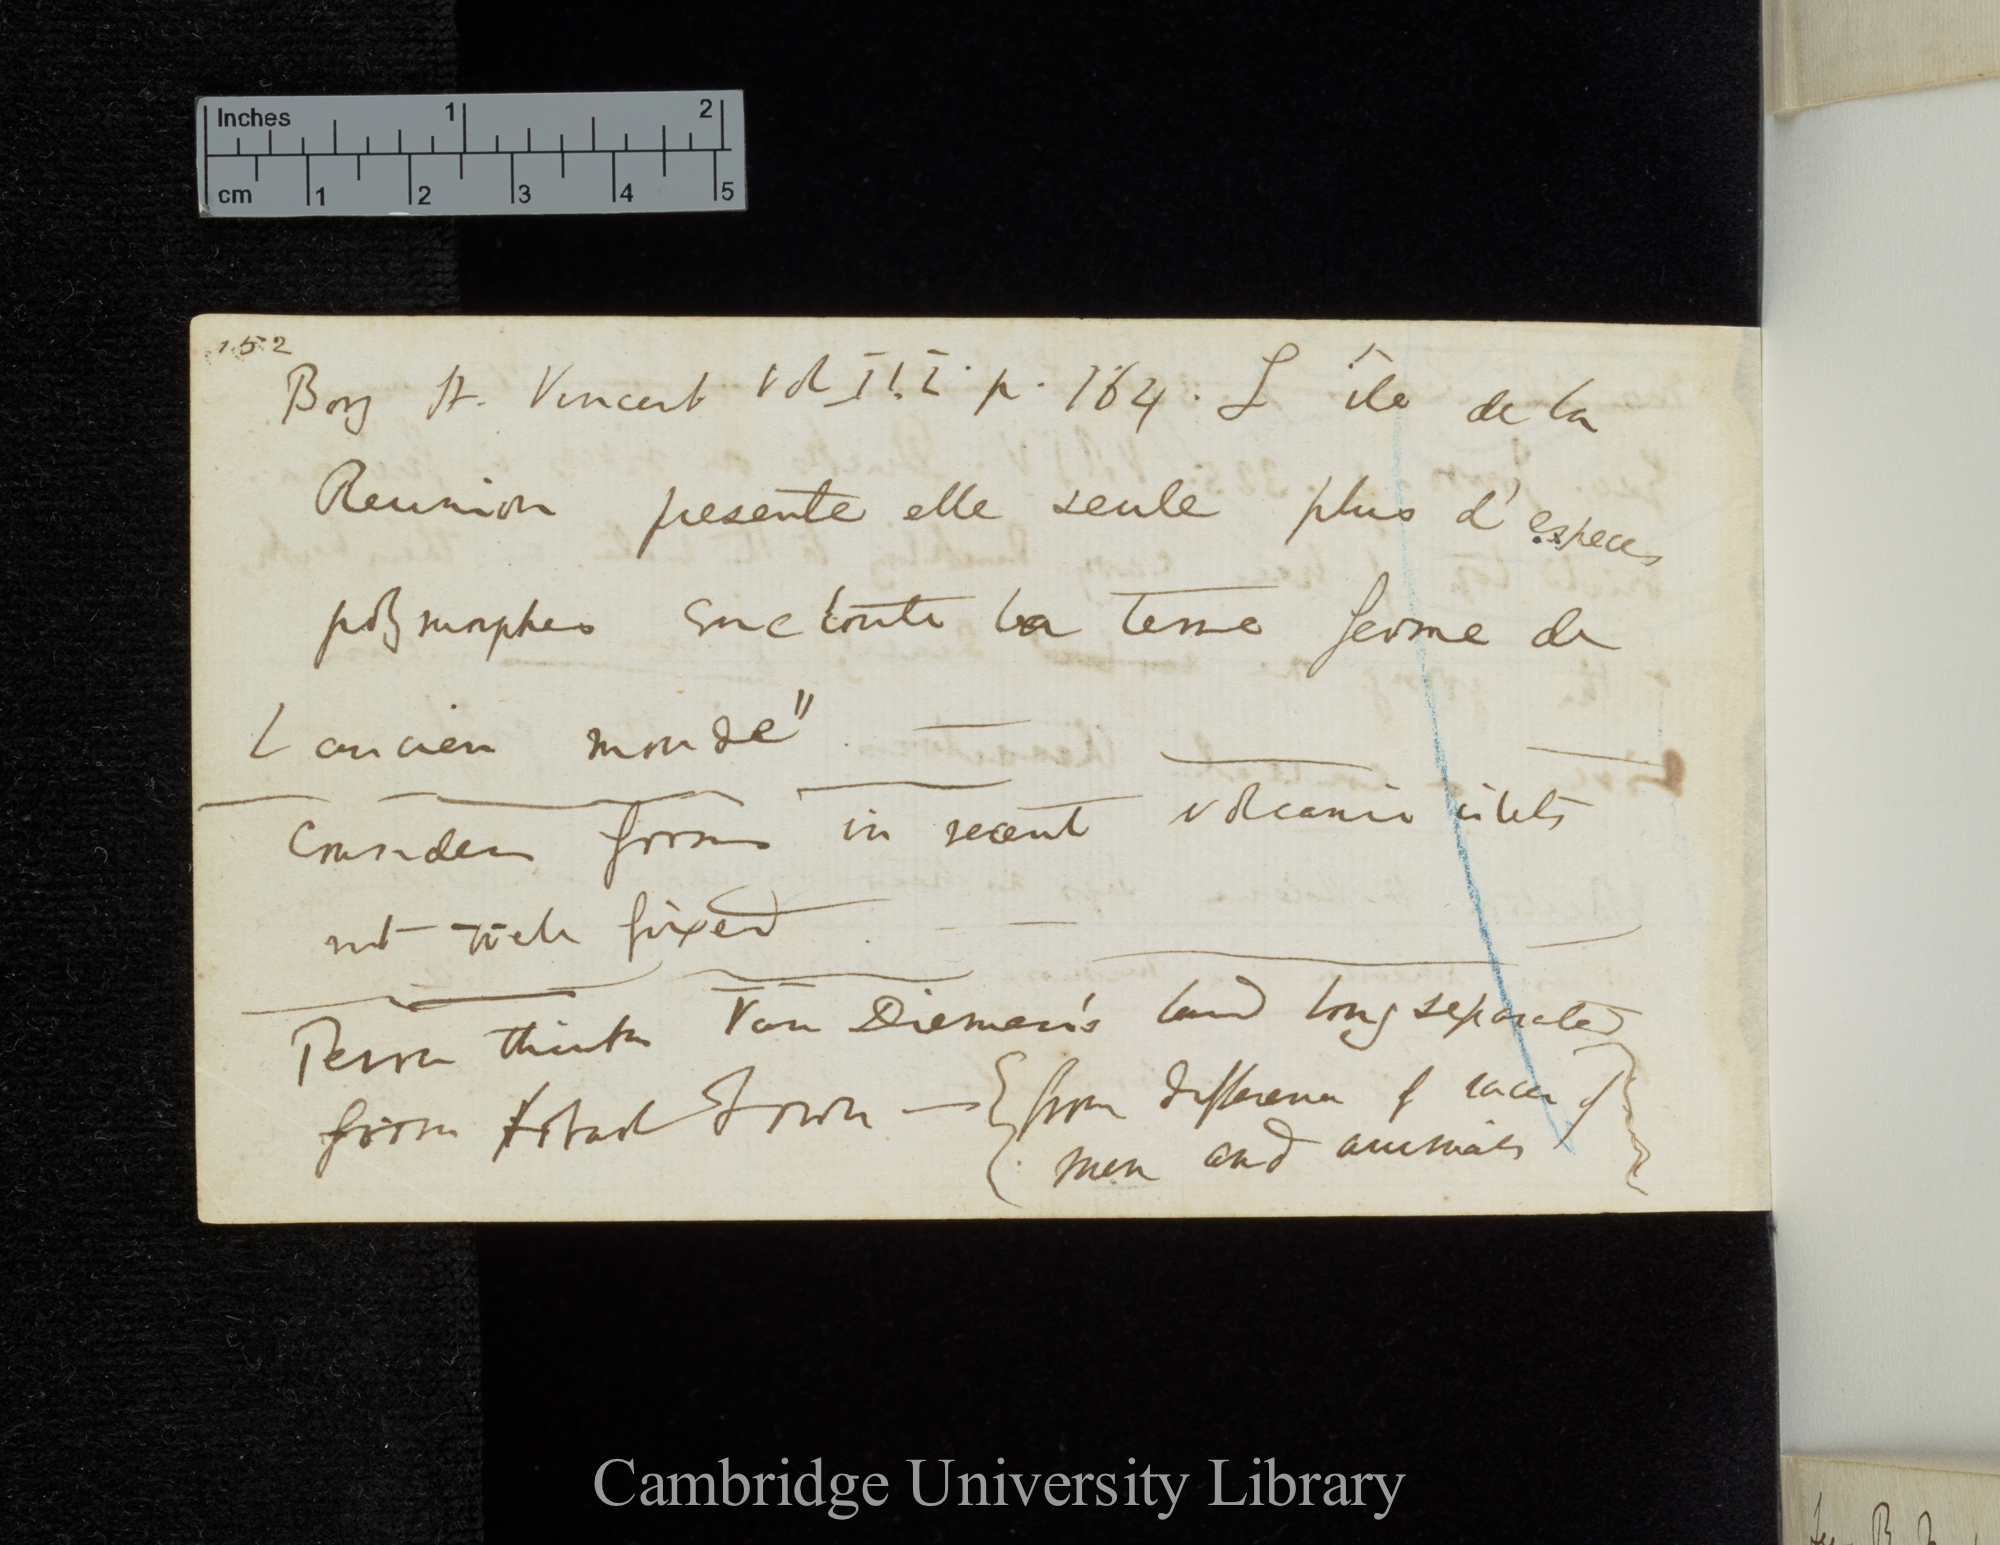 Inches 1 2
cm 1 2 3 4 5
152
Bory St. Vincent Vol III. p. 164. L île de la
Reunion presente elle seule plus d'especes
polymorphes que toute la terre ferme de
L ancien monde".
Consider forms in recent volcanic islets
not well fixed.
Peron thinks Van Diemen's land long separated
from Hobart Town — { from difference of races of }
men and animals
Cambridge University Library